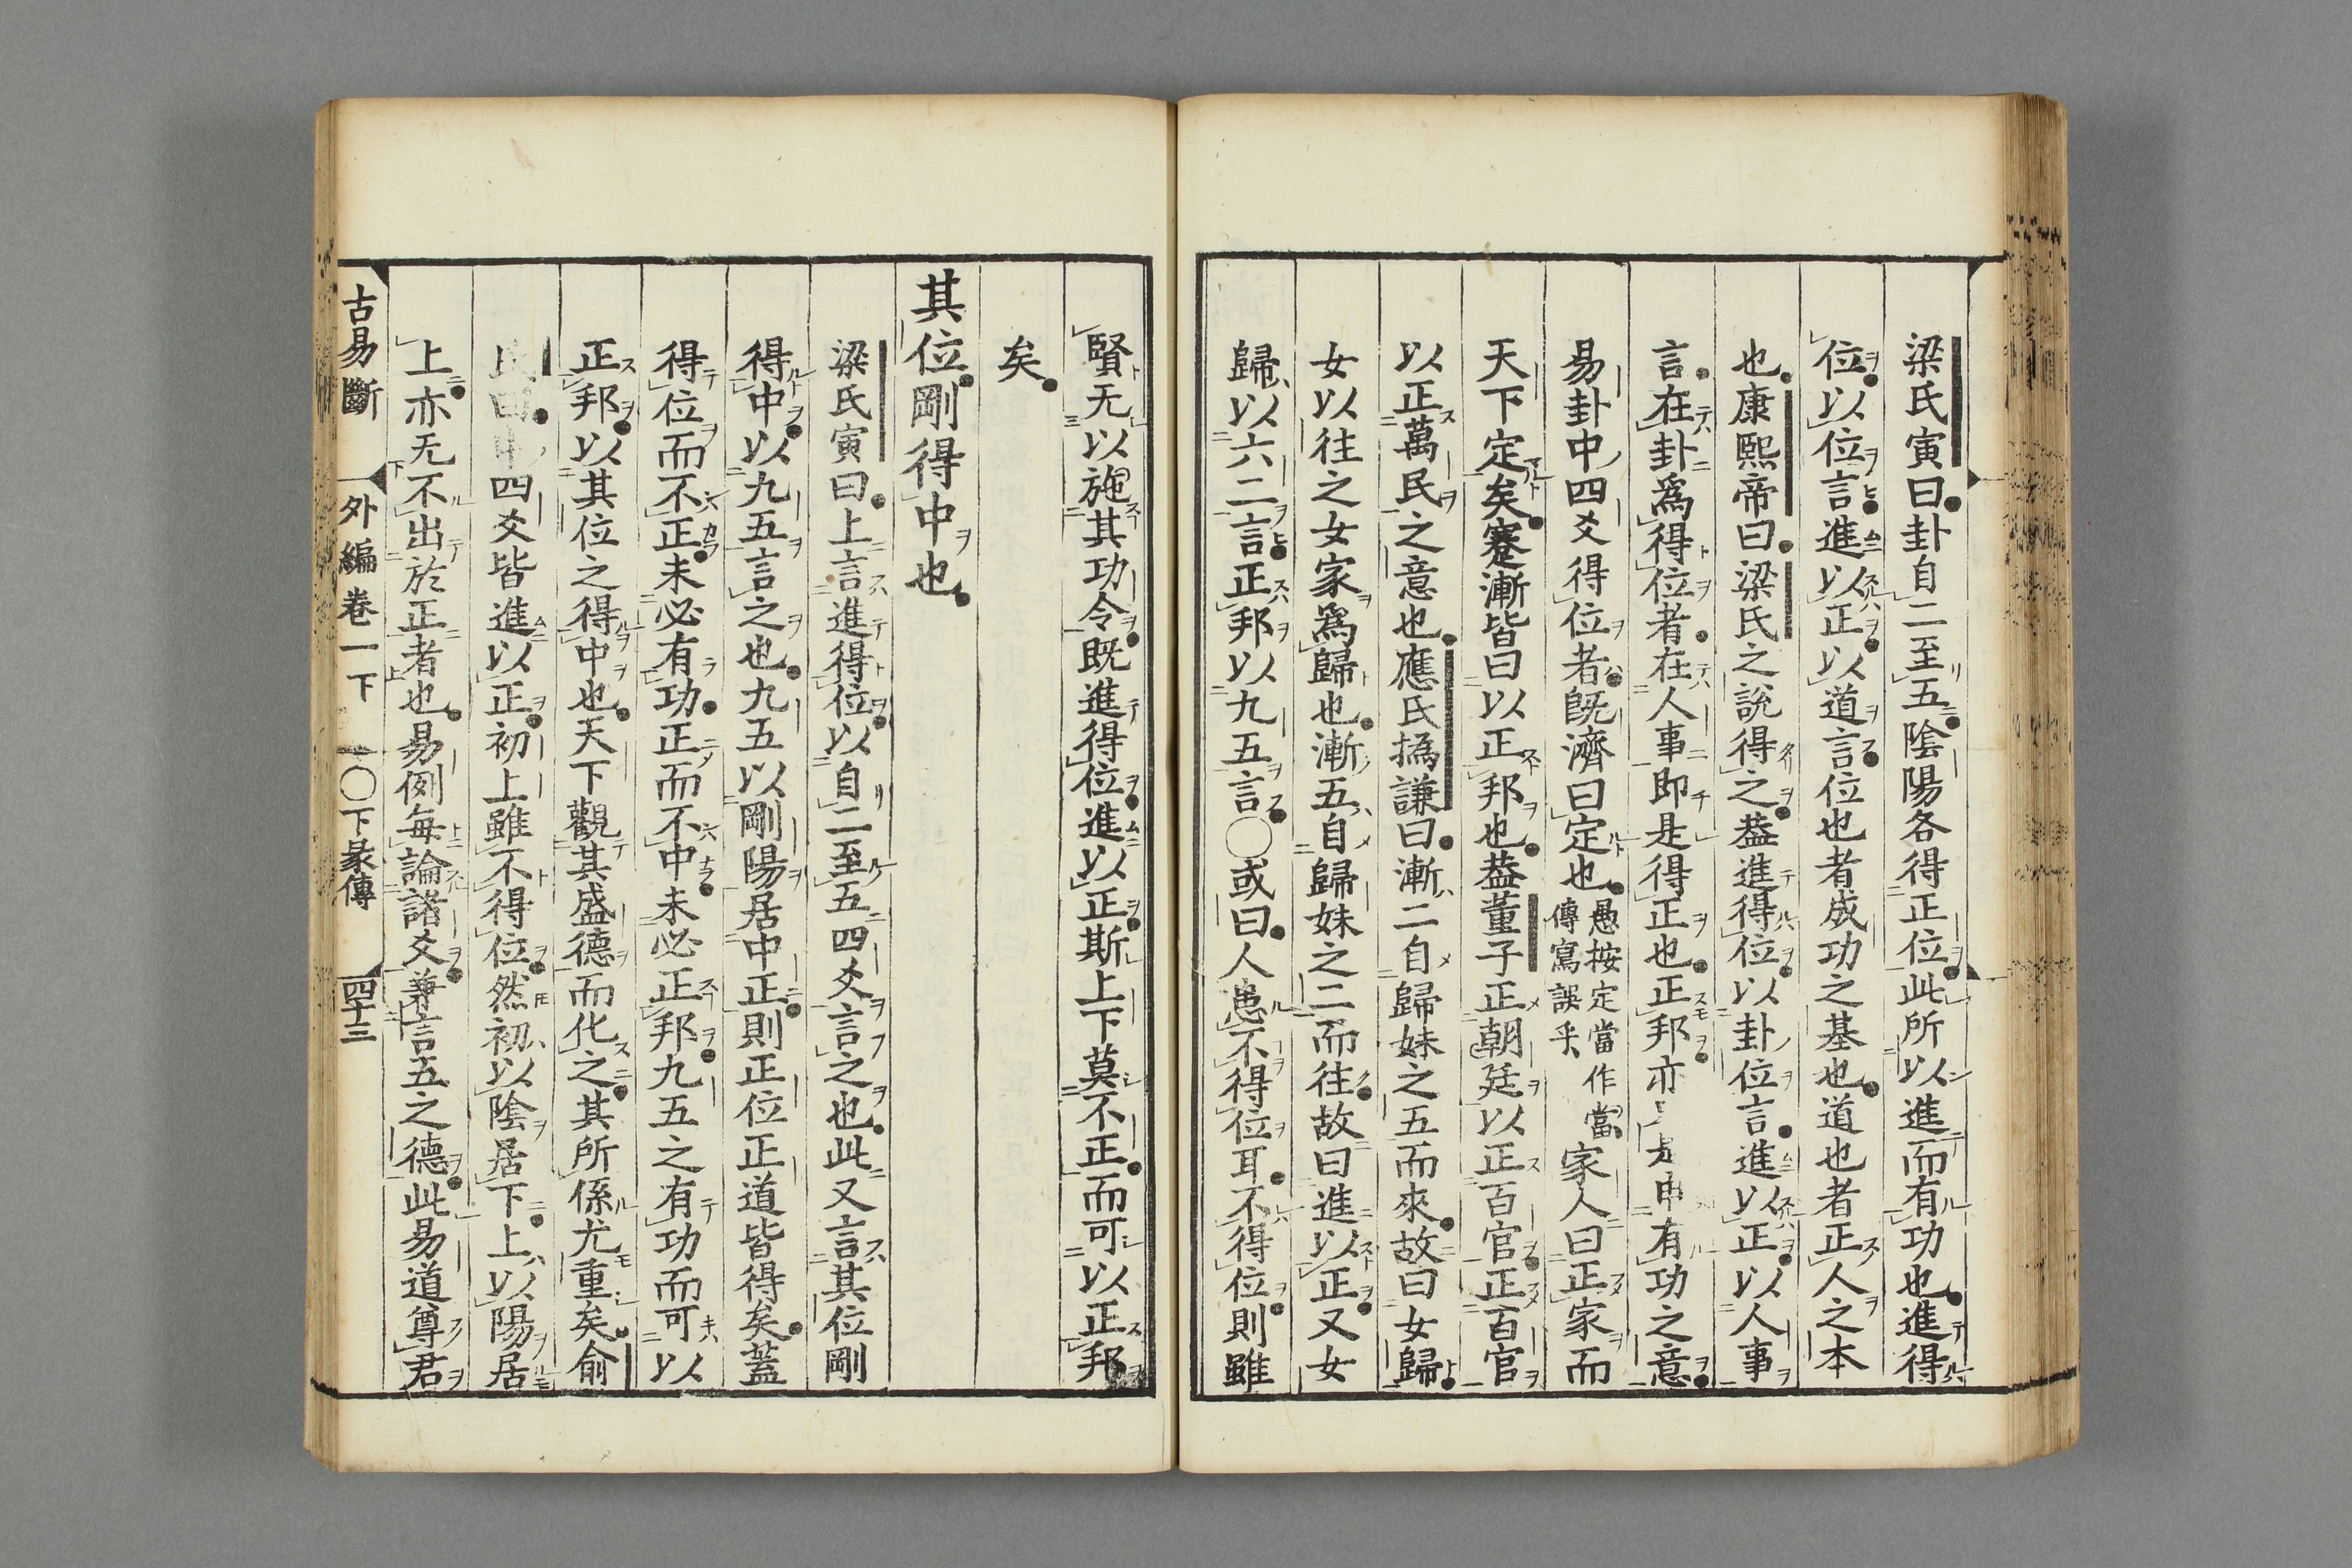 梁氏寅曰卦自二至五陰陽各得正位此所以進而有功也進得
位以位言進以正以道言位也者成功之基也道也者正人之本
也康熙帝曰梁氏之說得之葢進得位以卦位言進以正以人事
言在卦爲得位者在人事即是得正也正邦亦是申有功之意
易卦中四爻得位者旣濟曰定也愚按定當作當傳寫誤乎家人曰正家而
天下定矣蹇漸皆曰以正邦也葢董子正朝廷以正百官正百官
以正萬民之意也應氏撝謙曰漸二自歸妹之五而來故曰女歸
女以往之女家爲歸也漸五自歸妹之二而往故曰進以正又女
歸以六二言正邦以九五言〇或曰人患不得位耳不得位則雖
賢无以施其功今既進得位進以正斯上下莫不正而可以正邦
矣
其位剛得中也
梁氏寅曰上言進得位以自二至五四爻言之也此又言其位剛
得中以九五言之也九五以剛陽居中正則正位正道皆得矣蓋
得位而不正未必有功正而不中未必正邦九五之有功而可以
正邦以其位之得中也天下觀其盛德而化之其所係尤重矣俞
氏曰中四爻皆進以正初上雖不得位然初以陰居下上以陽居
上亦无不出於正者也易例每論諸爻兼言五之德此易道尊君
古易斷 外編卷一下 〇下彖傳 四十三